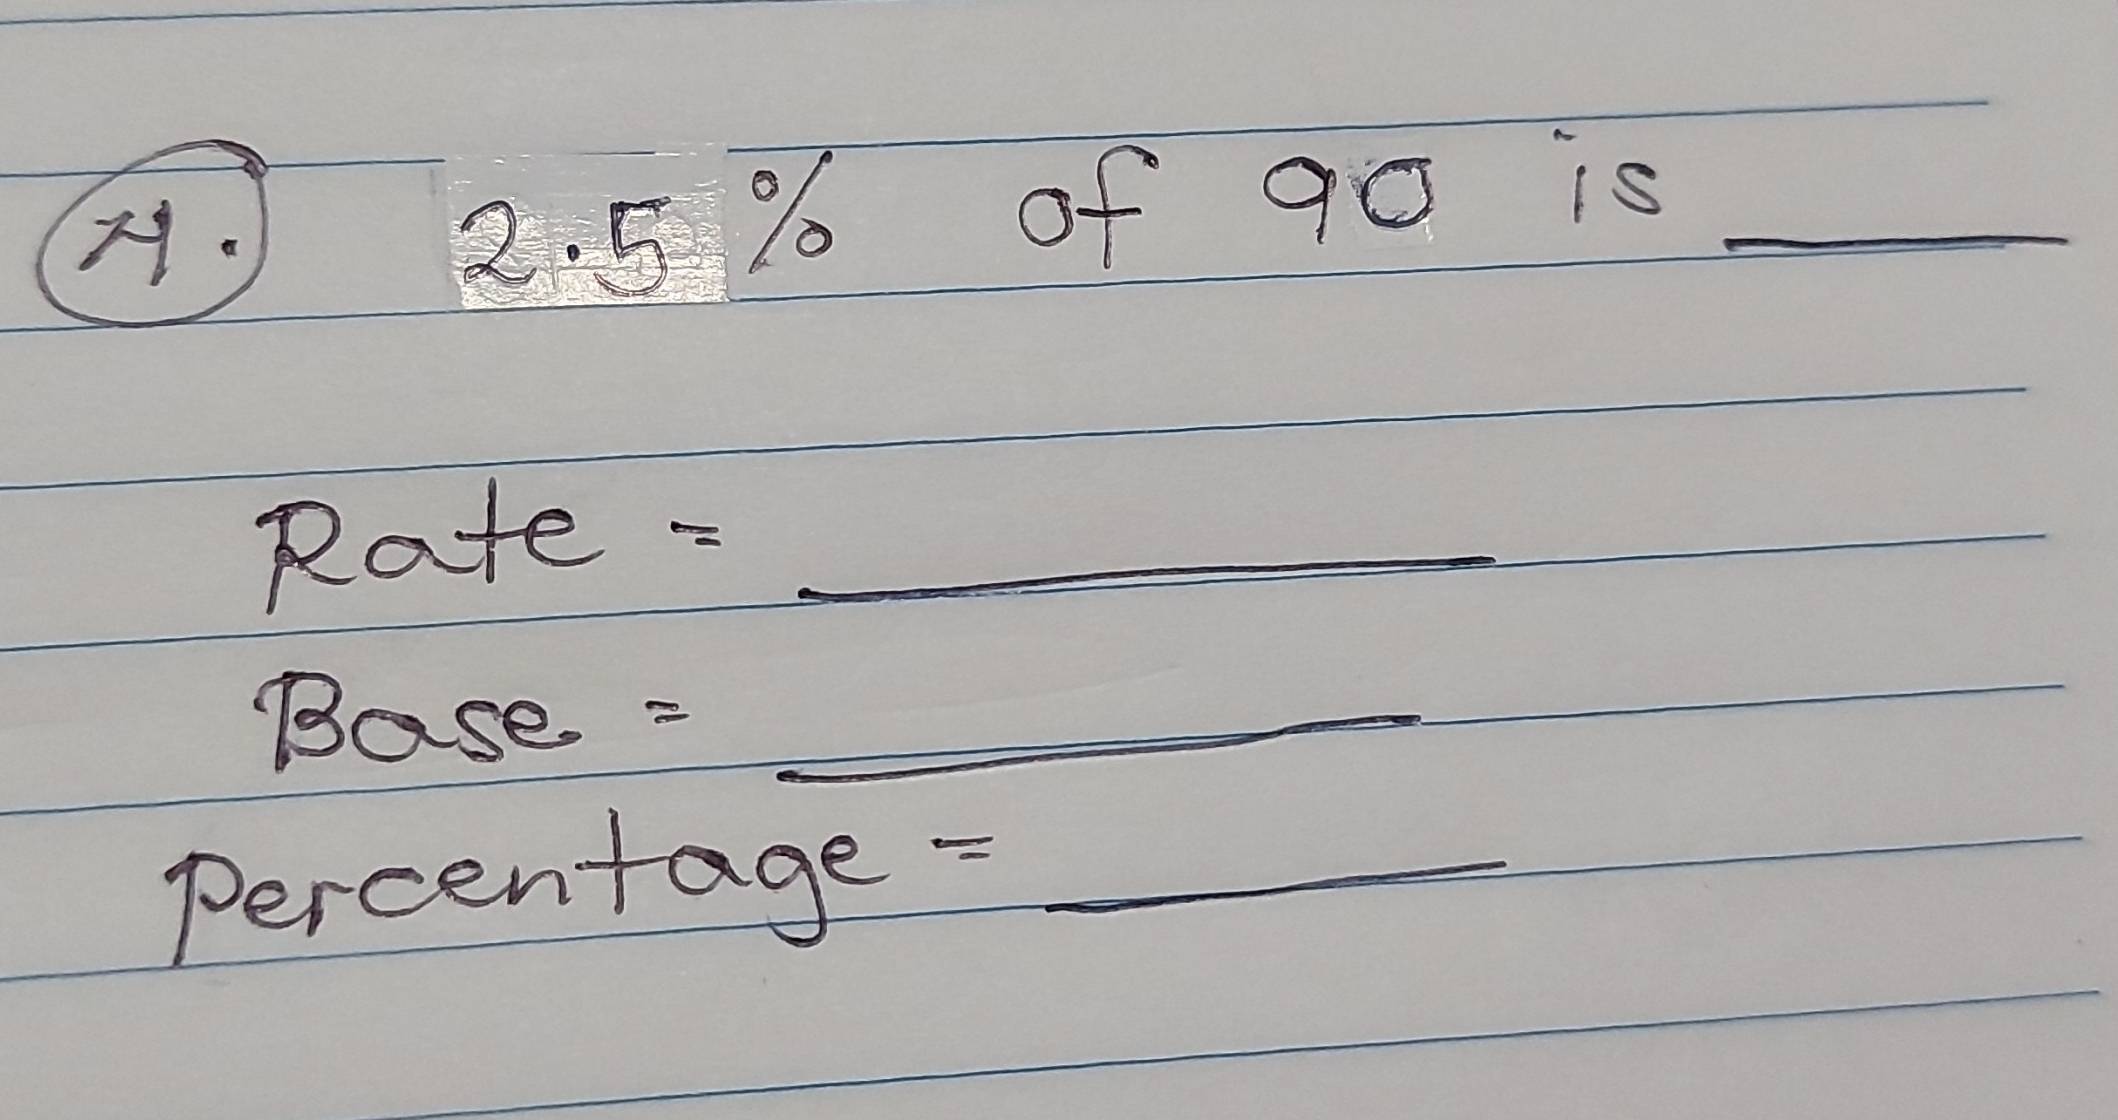 4. 2.5 % of 90 is ____
Rate = ____
Base = ____
Percentage = ____